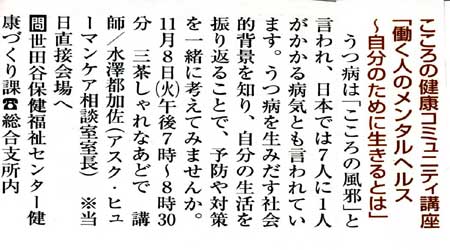 こころの健康コミュニティ講座
「働く人のメンタルヘルス
～自分のために生きるとは」
　うつ病は「こころの風邪」と
言われ、日本では７人に１人
がかかる病気とも言われてい
ます。うつ病を生みだす社会
的背景を知り、自分の生活を
振り返ることで、予防や対策
を一緒に考えてみませんか。
11月８日㈫午後７時～８時30
分　三茶しゃれなあどで　講
師／水澤都加佐（アスク・ヒュ
ーマンケア相談室室長）　※当
日直接会場へ
問世田谷保健福祉センター健
康づくり課☎総合支所内